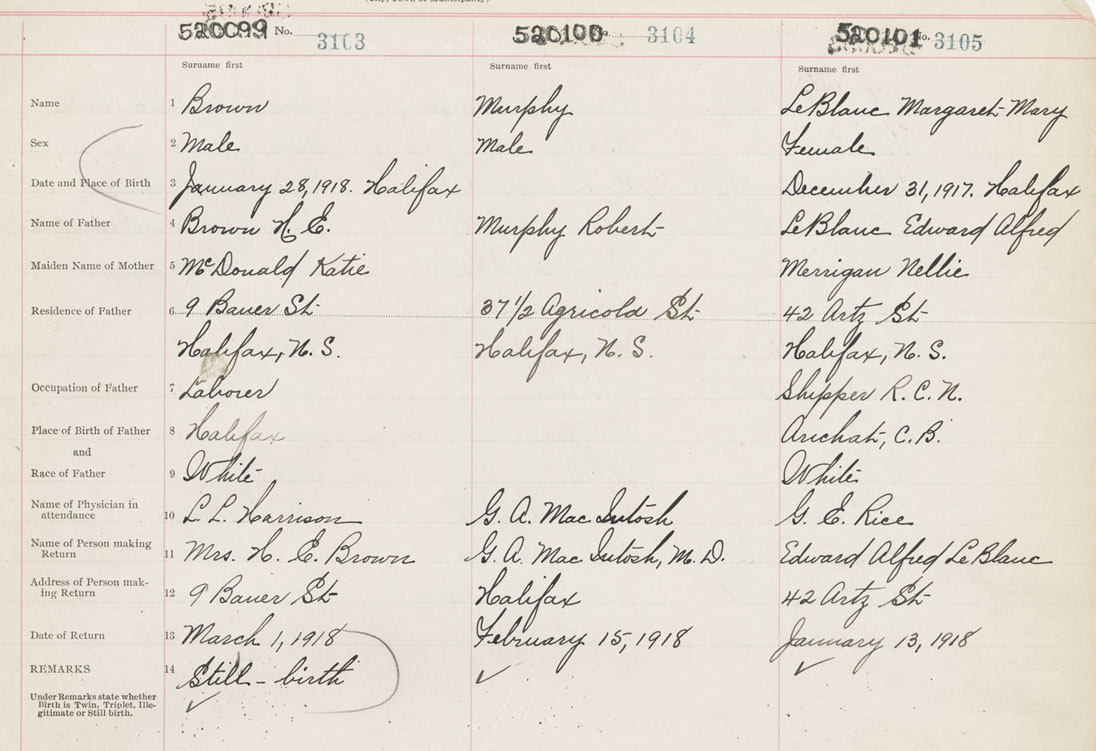 520099 No. 3103 520100 No. 3104 520101 No. 3105
Surname first Surname first Surname first
Name 1 Brown Murphy LeBlanc Margaret Mary
Sex 2 Male Male Female
Date and Place of Birth 3 January 28, 1918. Halifax December 31, 1917. Halifax
Name of Father 4 Brown H. E. Murphy Robert LeBlanc Edward Alfred
Maiden Name of Mother 5 McDonald Katie Merrigan Nellie
Residence of Father 6 9 Bauer St 37 1/2 Agricold St 42 Artz St
Halifax, N. S. Halifax, N. S. Halifax, N. S.
Occupation of Father 7 Laborer Shipper R. C. N.
Place of Birth of Father 8 Halifax Arichat, C. B.
and
Race of Father 9 White White
Name of Physician in
attendance 10 L. L. Harrison G. A. MacIntosh G. E. Rice
Name of Person making
Return 11 Mrs. H. E. Brown G. A. MacIntosh, M. D. Edward Alfred LeBlanc
Address of Person mak-
ing Return 12 9 Bauer St Halifax 42 Artz St
Date of Return 13 March 1, 1918 February 15, 1918 January 13, 1918
REMARKS 14 Still-birth ✓ ✓
Under Remarks state whether ✓
Birth is Twin, Triplet, Ille-
gitimate or Still birth.